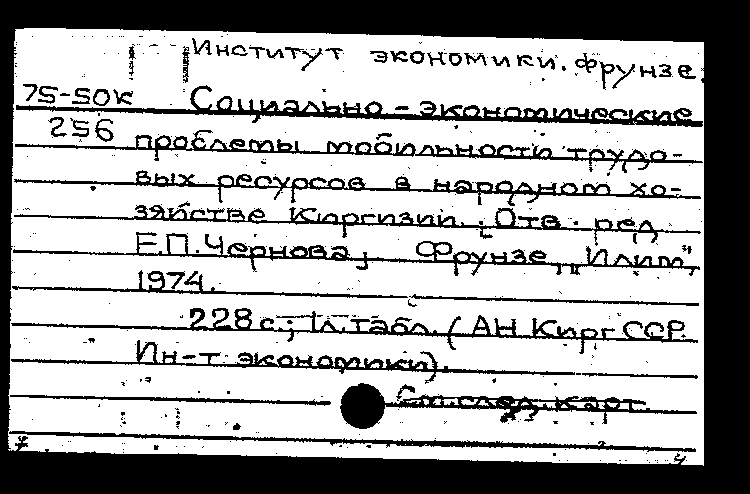 Институт экономики. Фрунзе.
75-50к Социально-экономические
256 проблемы мобильности трудо-
вых ресурсов в народном хо-
зяйстве Киргизии. [Отв. ред.
Е.П. Чернова], Фрунзе, "Илим",
1974.
228 с.; 1 л. табл. (АН Кирг ССР.
Ин-т экономики).
См. след. карт.